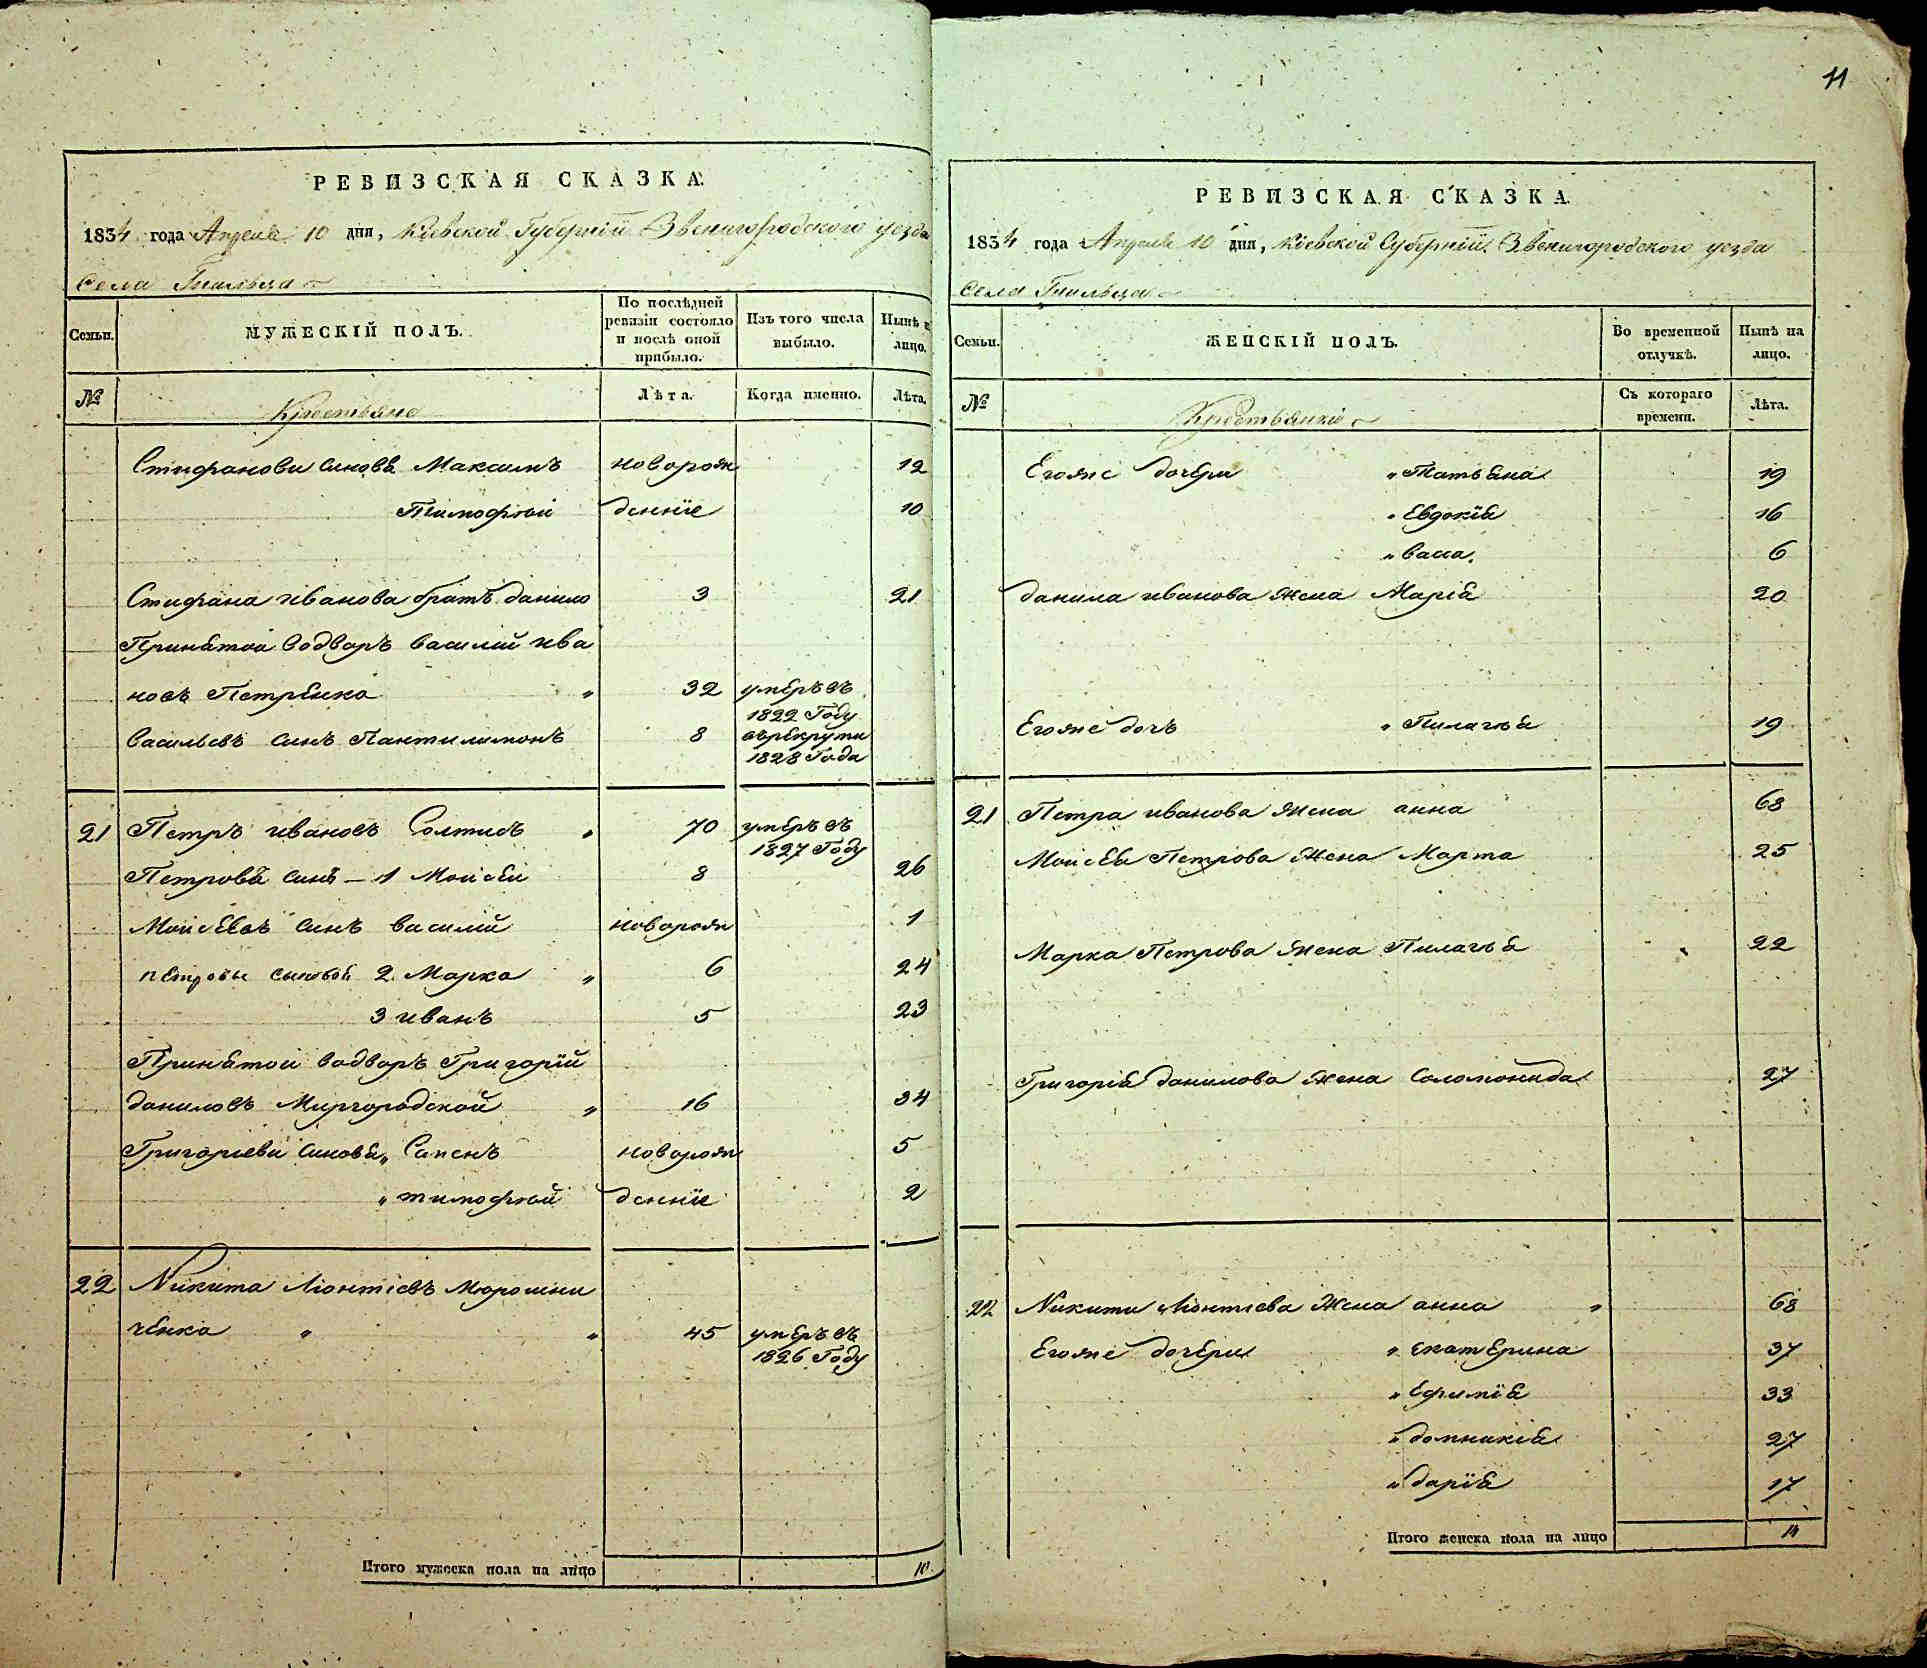 РЕВИЗСКАЯ СКАЗКА.
1834 года Апреля 10 дня, Киевской Губернiи Звенигородского уезда
Села Гнильца
Семьи.
МУЖЕСКIЙ ПОЛЪ.
По послѣдней ревизiи состояло и послѣ оной прибыло.
Изъ того числа выбыло.
Нынѣ на лицо.
№
Крестьяне
Лѣта.
Когда именно.
Лѣта.
Стифанови синовя Максимъ новорож 12
Тимофѣй деннiе 10
Стифана иванова братъ данило 3 21
Принятой водворъ василий ива
новъ Петренко " 32 умеръ въ 1822 Году
васильевъ синъ Пантилимонъ 8 върекрути 1828 Года
21 Петръ ивановъ Солтисъ " 70 умеръ въ 1827 Году
Петрова синъ - 1 Моисей 8 26
Моисеевъ синъ василий новорож 1
петровы сыновя 2 Марко " 6 24
3 иванъ 5 23
Принятои водворъ Григорiй
даниловъ Миргородской " 16 34
Григориеви синовя " Сапенъ новорож 5
" тимофѣй деннiе 2
22 Никита Лionтiевъ Мюрошни
ченко " " 45 умеръ въ 1826 Году
Итого мужеска пола на лицо 10
11
РЕВИЗСКАЯ СКАЗКА.
1834 года Апреля 10 дня, Киевской Губернiи Звенигородского уезда
Села Гнильца
Семьи.
ЖЕНСКIЙ ПОЛЪ.
Во временной отлучкѣ.
Нынѣ на лицо.
№
Крестьянки
Съ котораго времени.
Лѣта.
Егояже дочери " Татьяна 19
" Евдокiя 16
" васа 6
данила иванова жена Марiя 20
Егояже дочъ " Пилагѣя 19
21 Петра иванова жена анна 68
Моисея Петрова жена Марта 25
Марка Петрова жена Пилагѣя 22
Григорiя данилова жена Соломонида 27
22 Никити Лионтиева жена анна " 68
Егояже дочери " екатерина 37
" Ефимiя 33
" домникiя 27
" дарiя 17
Итого женска пола на лицо 14